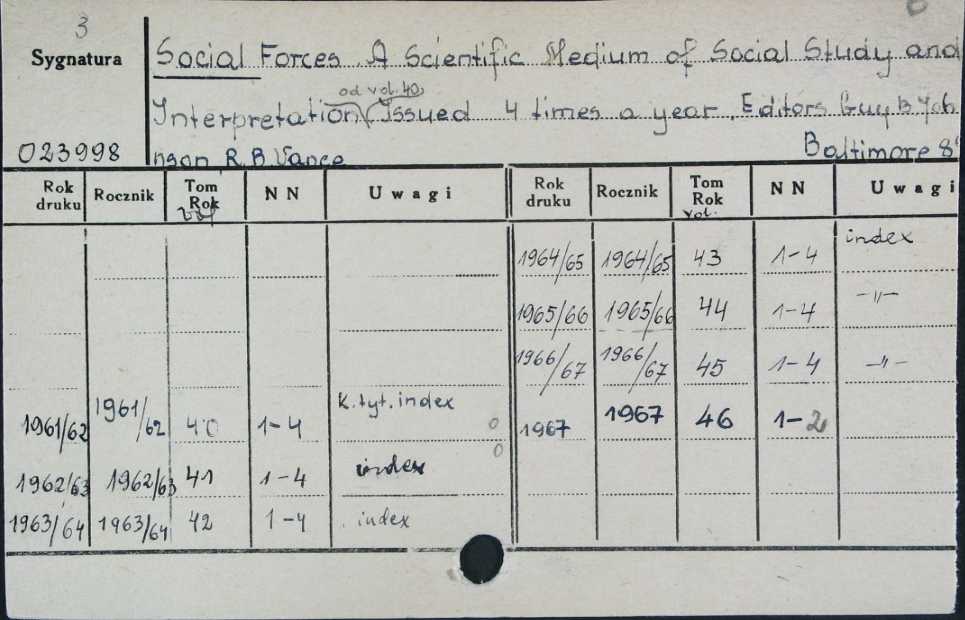 3
Sygnatura
023998
Social Forces. A Scientific Medium of Social Study and
od vol. 40
Interpretation (Issued 4 times a year. Editors Guy B. Joh
nson R.B. Vance
Baltimore 8
Rok druku Rocznik Tom Rok vol. NN Uwagi Rok druku Rocznik Tom Rok vol. NN Uwagi
1964/65 1964/65 43 1-4 index
1965/66 1965/66 44 1-4 -"-
1966/67 1966/67 45 1-4 -"-
1961/62 1961/62 40 1-4 K. tyt. index 0 1967 1967 46 1-2
1962/63 1962/63 41 1-4 index 0
1963/64 1963/64 42 1-4 index